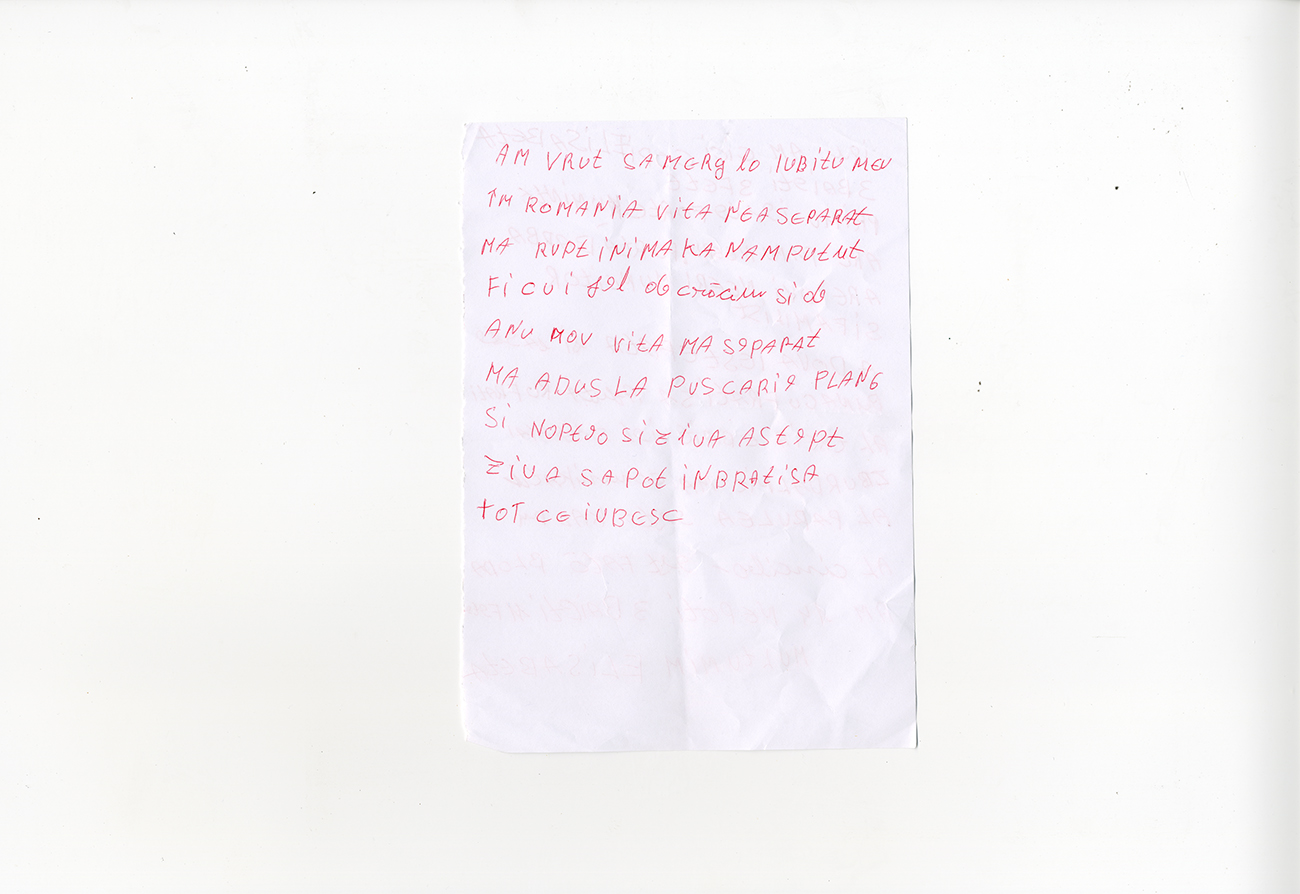 AM VRUt SA MERg lo IUBitU MEU
ÎM ROMANiA VitA NEA SEPARAt
MA RUPt iNiMA KA NAM PUtut
Fi CU i fel de crăciun si de
ANU NOU VitA MA SePARAt
MA ADUS LA PUSCARie PLANG
Si NOPteo Si ZiUA AStePt
ZiUA SA POt iNBRAtiSA
tOT CE iUBESC